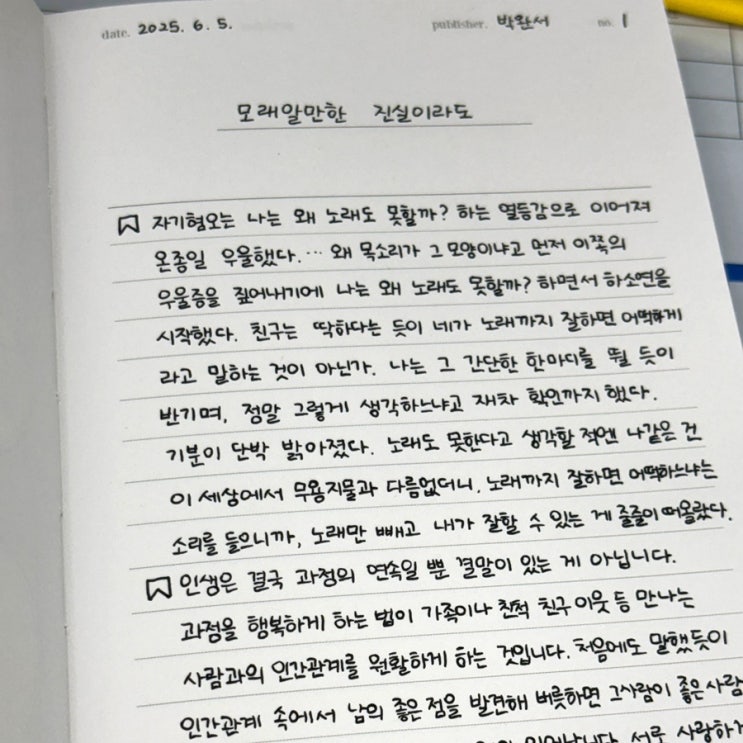 date. 2025. 6. 5. publisher. 박완서 no. 1
모래알만한 진실이라도
자기혐오는 나는 왜 노래도 못할까? 하는 열등감으로 이어져
온종일 우울했다. … 왜 목소리가 그 모양이냐고 먼저 이쪽의
우울증을 짚어내기에 나는 왜 노래도 못할까? 하면서 하소연을
시작했다. 친구는 딱하다는 듯이 네가 노래까지 잘하면 어떡하게
라고 말하는 것이 아닌가. 나는 그 간단한 한마디를 뛸 듯이
반기며, 정말 그렇게 생각하느냐고 재차 확인까지 했다.
기분이 단박 밝아졌다. 노래도 못한다고 생각할 적엔 나같은 건
이 세상에서 무용지물과 다름없더니, 노래까지 잘하면 어떡하느냐는
소리를 들으니까, 노래만 빼고 내가 잘할 수 있는 게 줄줄이 떠올랐다.
인생은 결국 과정의 연속일 뿐 결말이 있는 게 아닙니다.
과정을 행복하게 하는 법이 가족이나 친척 친구 이웃 등 만나는
사람과의 인간관계를 원활하게 하는 것입니다. 처음에도 말했듯이
인간관계 속에서 남의 좋은 점을 발견해 버릇하면 그사람이 좋은사람
서로 사랑하게